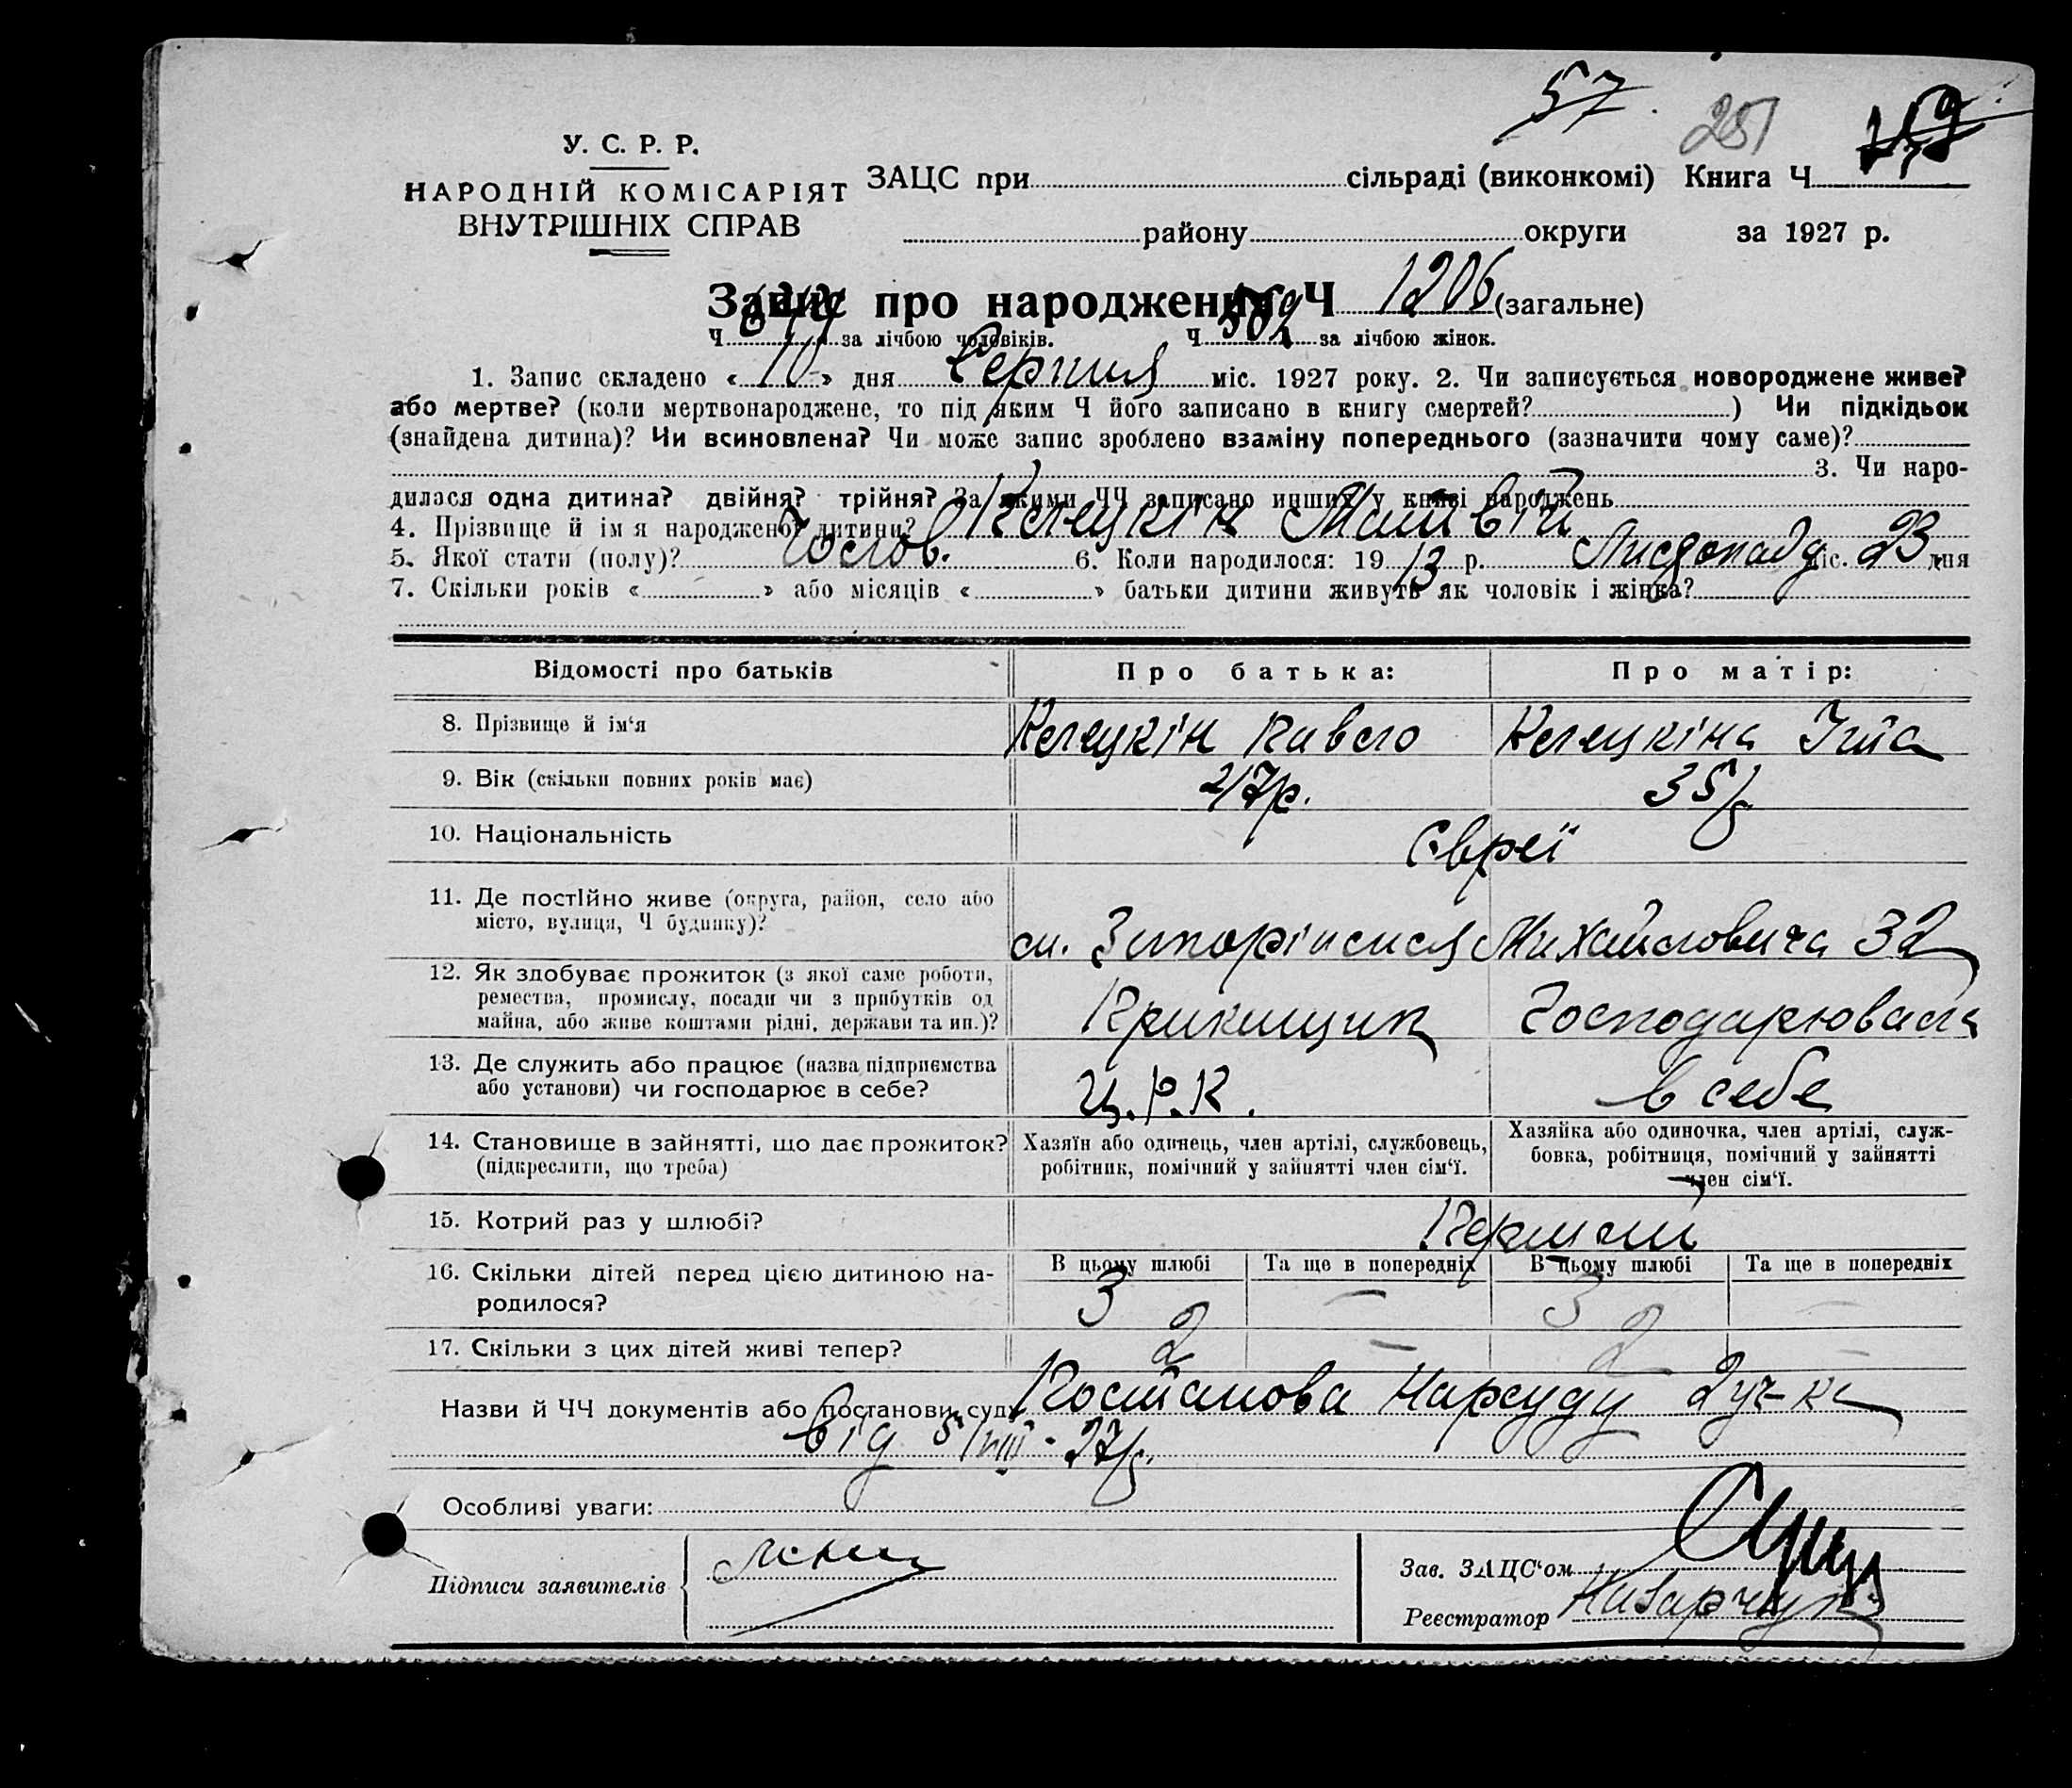 57. 251
У. С. Р. Р.
НАРОДНІЙ КОМІСАРІЯТ
ВНУТРІШНІХ СПРАВ
ЗАЦС при сільраді (виконкомі) Книга Ч
району округи за 1927 р.
Запис про народження Ч 1206 (загальне)
Ч за лічбою чоловіків. Ч 562 за лічбою жінок.
1. Запис складено « 10 » дня Серпня міс. 1927 року. 2. Чи записується новороджене живе?
або мертве? (коли мертвонароджене, то під яким Ч його записано в книгу смертей? ) Чи підкідьок
(знайдена дитина)? Чи всиновлена? Чи може запис зроблено взаміну попереднього (зазначити чому саме)?
3. Чи наро-
дилася одна дитина? двійня? трійня? За якими ЧЧ записано инших у книзі народжень
4. Прізвище й ім я народженої дитини? Келецкін
5. Якої стати (полу)? Чолов. 6. Коли народилося: 19 13 р. Листопаду міс. 23 дня
7. Скільки років « » або місяців « » батьки дитини живуть як чоловік і жінка?
Відомості про батьків Про батька: Про матір:
8. Прізвище й ім‘я Келецкін Келецкіна
9. Вік (скільки повних років має) 47р. 35р
10. Національність Євреї
11. Де постійно живе (округа, район, село або
місто, вулиця, Ч будинку)?
м. Михайловича 32
12. Як здобуває прожиток (з якої саме роботи,
ремества, промислу, посади чи з прибутків од
майна, або живе коштами рідні, держави та ин.)?
Прикащик Господарювала
13. Де служить або працює (назва підприємства
або установи) чи господарює в себе?
Ц.Р.К. в себе
14. Становище в зайнятті, що дає прожиток?
(підкреслити, що треба)
Хазяїн або одинець, член артілі, службовець,
робітник, помічний у зайнятті член сім‘ї.
Хазяйка або одиночка, член артілі, служ-
бовка, робітниця, помічний у зайнятті
член сім‘ї.
15. Котрий раз у шлюбі? Перший
16. Скільки дітей перед цією дитиною на-
родилося?
В цьому шлюбі Та ще в попередніх В цьому шлюбі Та ще в попередніх
3 – 3 –
17. Скільки з цих дітей живі тепер? 2 – 2 –
Назви й ЧЧ документів або постанови суду Постанова Нарсуду 2 уч-ка
від 5/VIII-27р.
Особливі уваги:
Підписи заявителів
Зав. ЗАЦС‘ом
Реєстратор